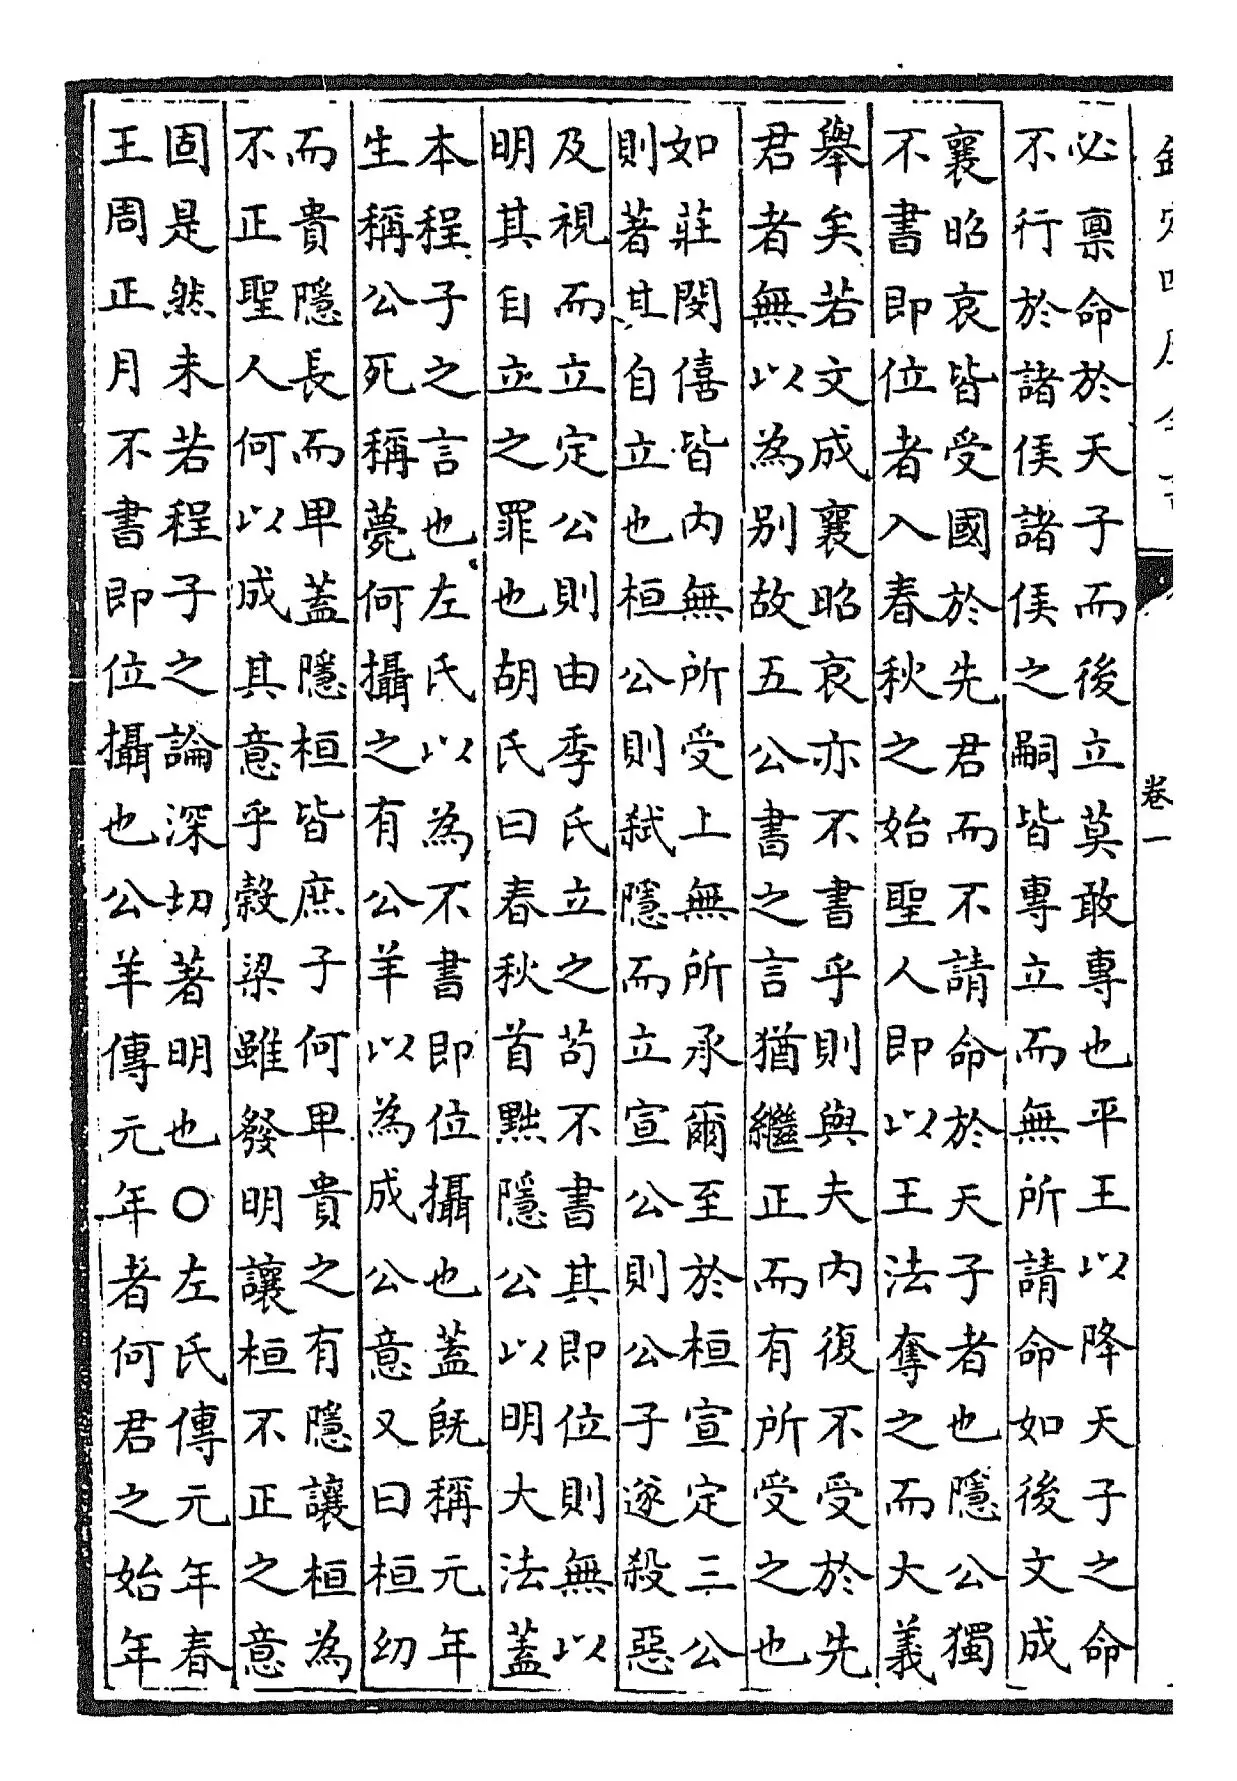 欽定四庫全書
卷一
必禀命於天子而後立莫敢專也平王以降天子之命
不行於諸侯諸侯之嗣皆專立而無所請命如後文成
襄昭哀皆受國於先君而不請命於天子者也隱公獨
不書即位者入春秋之始聖人即以王法奪之而大義
舉矣若文成襄昭哀亦不書乎則與夫内復不受於先
君者無以為别故五公書之言猶繼正而有所受之也
如莊閔僖皆内無所受上無所承爾至於桓宣定三公
則著其自立也桓公則弑隱而立宣公則公子遂殺惡
及視而立定公則由季氏立之茍不書其即位則無以
明其自立之罪也胡氏曰春秋首黜隱公以明大法蓋
本程子之言也左氏以為不書即位攝也蓋既稱元年
生稱公死稱薨何攝之有公羊以為成公意又曰桓幼
而貴隱長而卑蓋隱桓皆庶子何卑貴之有隱讓桓為
不正聖人何以成其意乎榖梁雖發明讓桓不正之意
固是然未若程子之論深切著明也○左氏傳元年春
王周正月不書即位攝也公羊傳元年者何君之始年